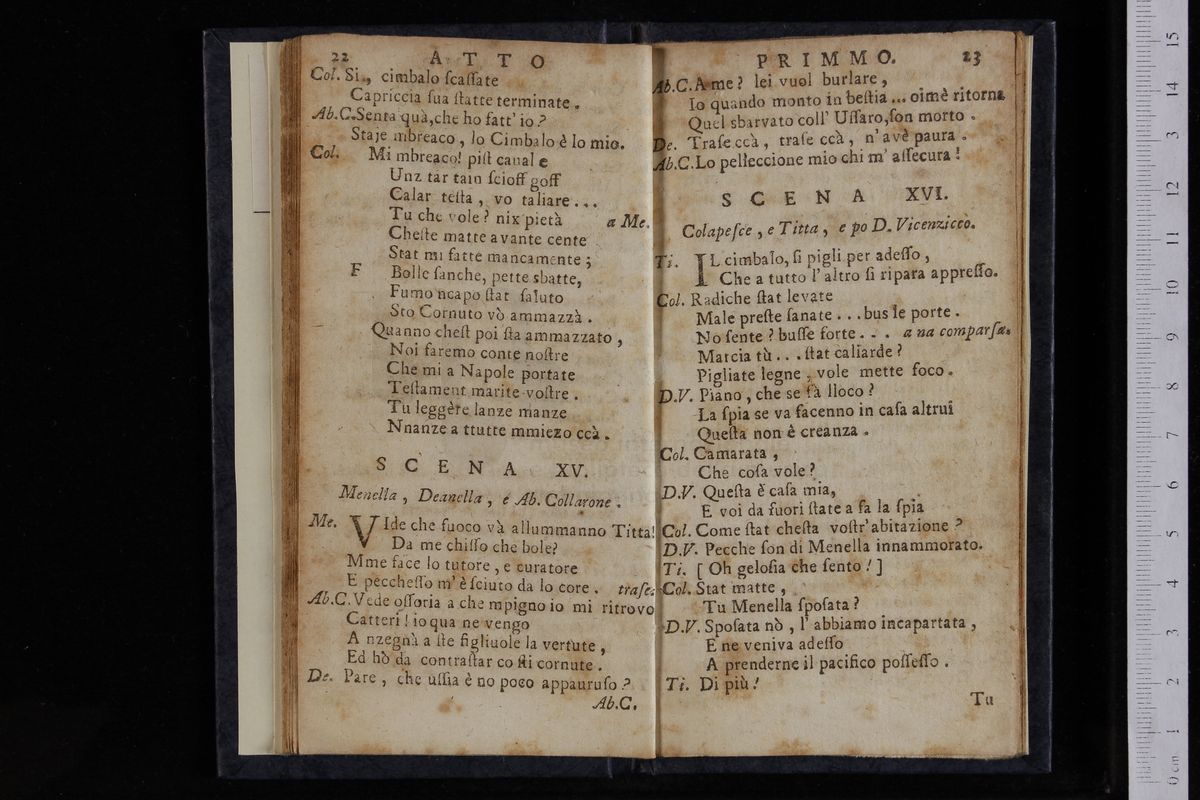 22 ATTO
Col. Si., cimbalo ſcaſſate
Capriccia ſua ſtatte terminate.
Ab.C. Senta quà, che ho fatt' io?
Staje mbreaco, lo Cimbalo è lo mio.
Col. Mi mbreaco! piſt canal e
Unz tar tain ſcioff goff
Calar teſta, vo taliare...
Tu che vole? nix pietà a Me.
Cheſte matte avante cente
Stat mi fatte mancamente;
F Bolle ſanche, pette sbatte,
Fumo ncapo ſtat ſaluto
Sto Cornuto vò ammazzà.
Quanno cheſt poi ſta ammazzato,
Noi faremo conte noſtre
Che mi a Napole portate
Teſtament marite voſtre.
Tu leggère lanze manze
Nnanze a ttutte mmiezo ccà.
SCENA XV.
Menella, Deanella, e Ab. Collarone.
Me. VIde che fuoco và allummanno Titta!
Da me chiſſo che bole?
Mme face lo tutore, e curatore
E peccheſſo m' è ſciuto da lo core. traſe.
Ab.C. Vede oſſoria a che mpigno io mi ritrovo
Catteri! io qua ne vengo
A nzegnà a ſte figliuole la vertute,
Ed hò da contraſtar co ſti cornute.
De. Pare, che uſſia è no poco appauruſo?
Ab.C.
PRIMMO. 23
Ab.C. A me? lei vuol burlare,
Io quando monto in beſtia... oimè ritorna
Quel sbarvato coll' Uſſaro, ſon morto.
De. Traſe ccà, traſe ccà, n' avè paura.
Ab.C. Lo pelleccione mio chi m' aſſecura!
SCENA XVI.
Colapeſce, e Titta, e po D. Vicenzicco.
Ti. IL cimbalo, ſi pigli per adeſſo,
Che a tutto l' altro ſi ripara appreſſo.
Col. Radiche ſtat levate
Male preſte ſanate... bus le porte.
No ſente? buſſe forte... a na comparſa.
Marcia tù... ſtat caliarde?
Pigliate legne, vole mette foco.
D.V. Piano, che se fà lloco?
La ſpia se va facenno in caſa altrui
Queſta non è creanza.
Col. Camarata,
Che coſa vole?
D.V. Queſta è caſa mia,
E voi da fuori ſtate a fa la ſpia
Col. Come ſtat cheſta voſtr' abitazione?
D.V. Pecche ſon di Menella innammorato.
Ti. [ Oh geloſia che ſento! ]
Col. Stat matte,
Tu Menella ſpoſata?
D.V. Spoſata nò, l' abbiamo incapartata,
E ne veniva adeſſo
A prenderne il pacifico poſſeſſo.
Ti. Di più!
Tu
0 cm 1 2 3 4 5 6 7 8 9 10 11 12 13 14 15